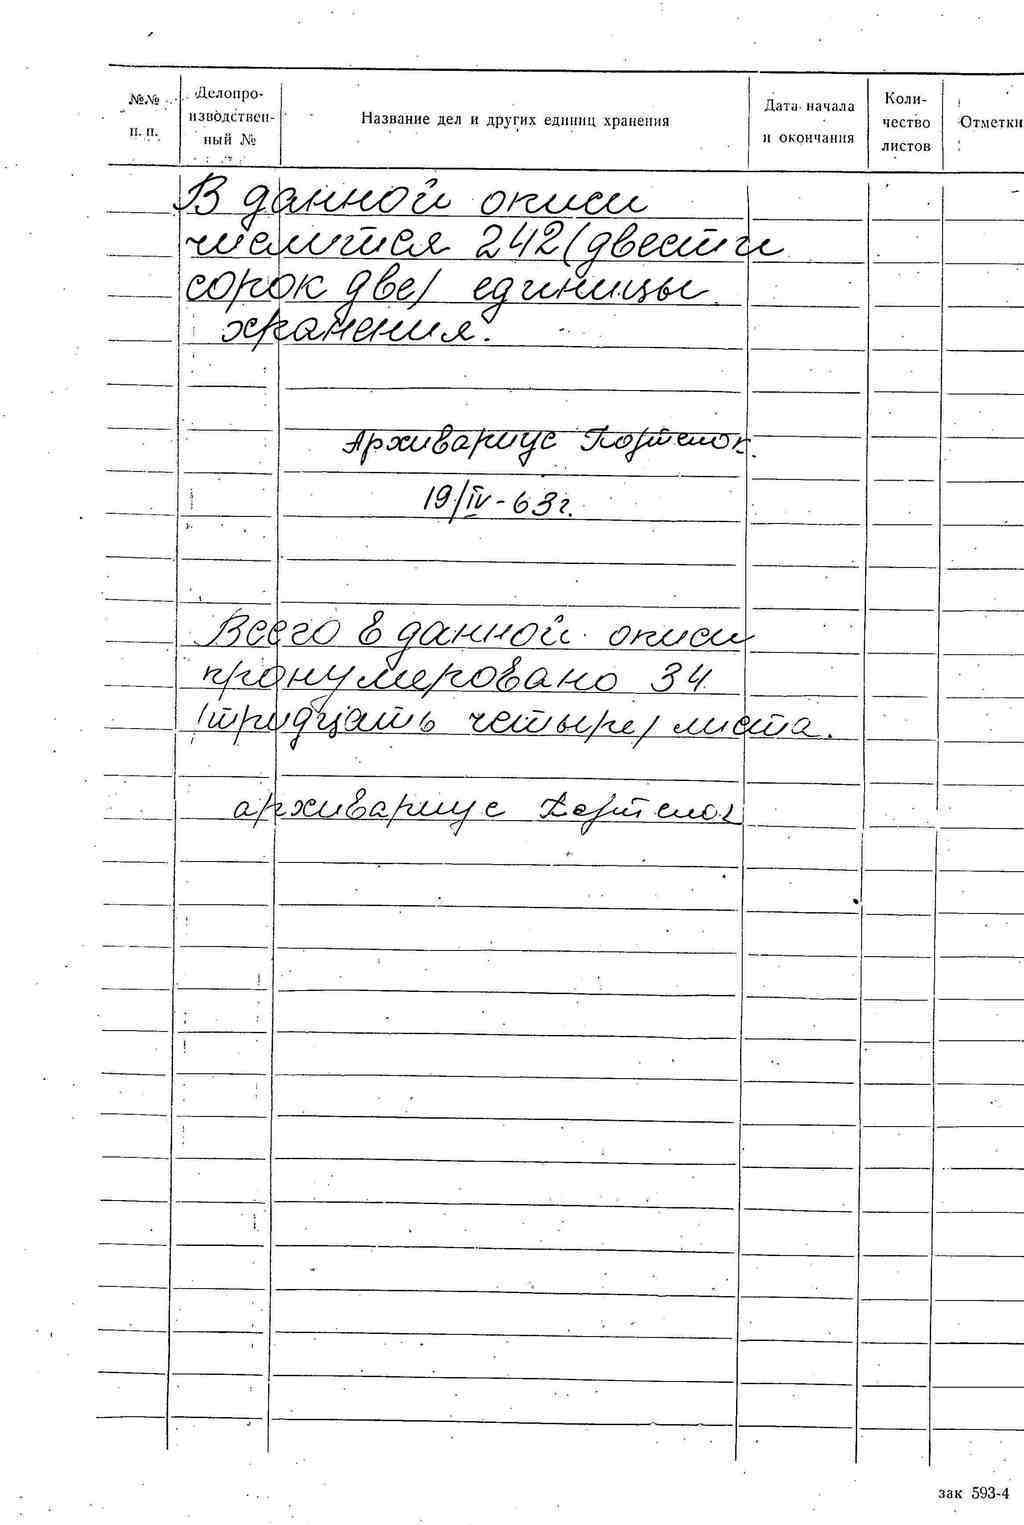 №№ п. п. Делопро- изводствен- ный № Название дел и других единиц хранения Дата начала и окончания Коли- чество листов Отметки
В данной описи
числится 242 (двести
сорок две) единицы
хранения.
Архивариус
19/IV-63г.
Всего в данной описи
пронумеровано 34
(тридцать четыре) листа.
архивариус
зак 593-4